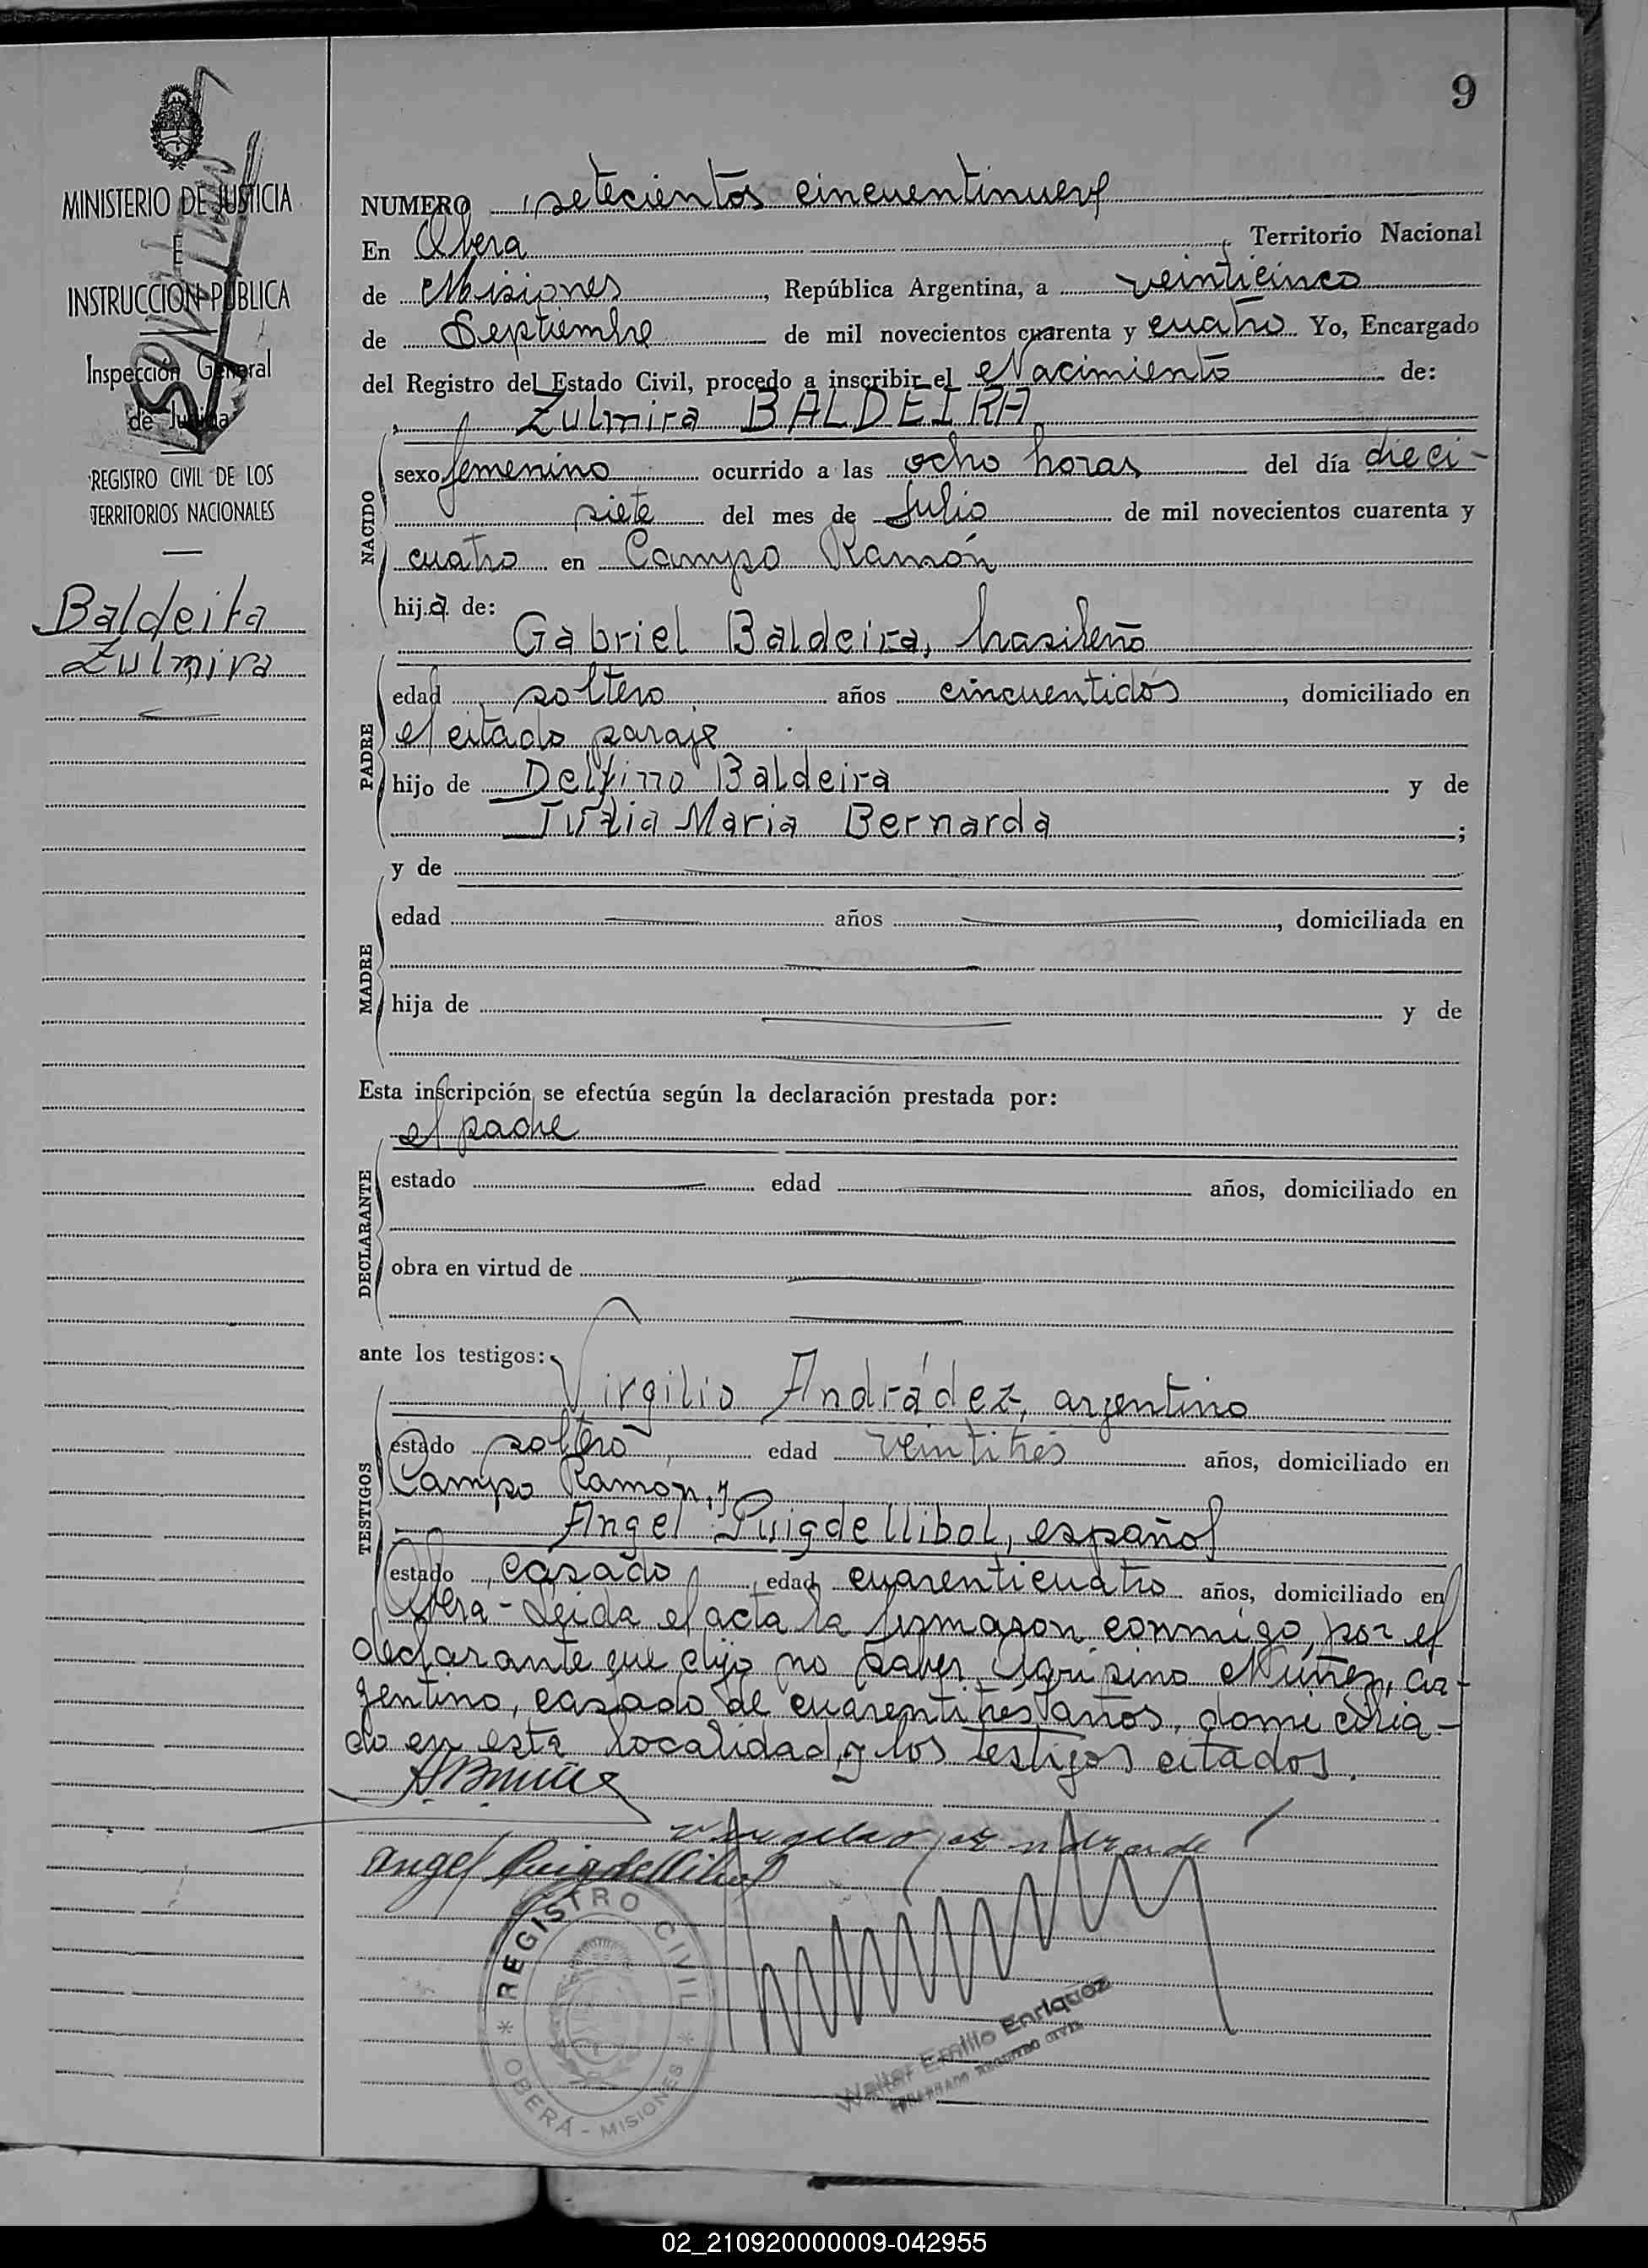 9
MINISTERIO DE JUSTICIA
E
INSTRUCCION PUBLICA
Inspección General
de Justicia
REGISTRO CIVIL DE LOS
TERRITORIOS NACIONALES
Baldeira
Zulmira
NUMERO setecientos cincuentinueve
En Oberá, Territorio Nacional
de Misiones, República Argentina, a veinticinco
de Septiembre de mil novecientos cuarenta y cuatro Yo, Encargado
del Registro del Estado Civil, procedo a inscribir el Nacimiento de:
Zulmira BALDEIRA
NACIDO
sexo femenino ocurrido a las ocho horas del día dieci-
siete del mes de Julio de mil novecientos cuarenta y
cuatro en Campo Ramón
hija de:
Gabriel Baldeira, brasileño
PADRE
edad soltero años cincuentidós, domiciliado en
el citado paraje
hijo de Delfino Baldeira y de
Maria Bernarda;
y de
MADRE
edad años, domiciliada en
hija de y de
Esta inscripción se efectúa según la declaración prestada por:
el padre
DECLARANTE
estado edad años, domiciliado en
obra en virtud de
ante los testigos:
Virgilio Andrádez, argentino
TESTIGOS
estado soltero edad veintitrés años, domiciliado en
Campo Ramón, y
Angel Puigdellibol, español
estado casado, edad cuarenticuatro años, domiciliado en
Oberá - Leida el acta la firmaron conmigo, por el
declarante que dijo no saber, Agripino Núñez, ar-
gentino, casado de cuarentitrés años, domicilia-
do en esta localidad, y los testigos citados.
Angel Puigdellibol
REGISTRO CIVIL
OBERÁ - MISIONES
Walter Emilio Enriquez
ENCARGADO REGISTRO CIVIL
02_210920000009-042955